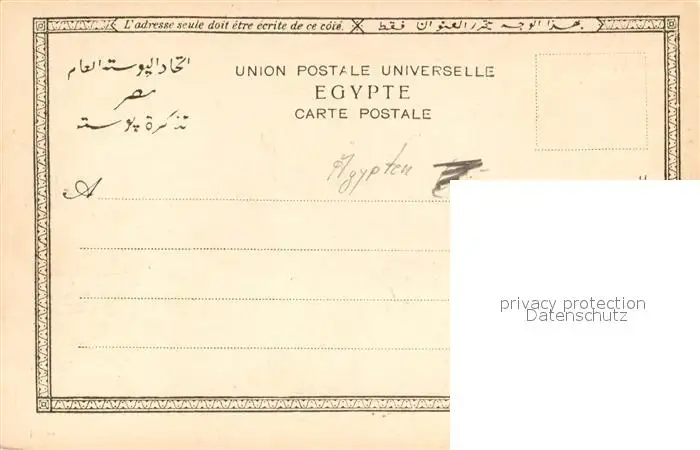 L'adresse seule doit être écrite de ce côté. بهذا الوجه يتحرر العنوان فقط
اتحاد البوسته العام
مصر
تذكرة بوسته
UNION POSTALE UNIVERSELLE
EGYPTE
CARTE POSTALE
Ägypten
A
privacy protection
Datenschutz